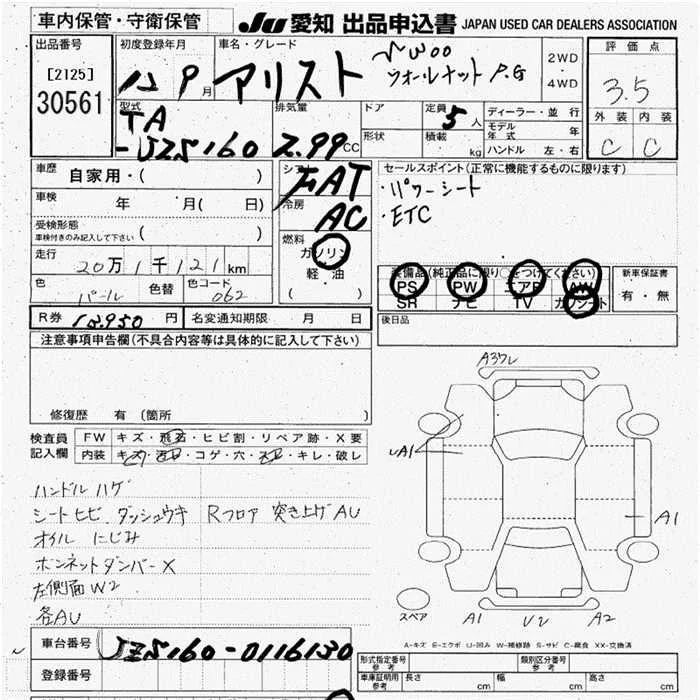 車内保管・守衛保管
JU 愛知 出品申込書 JAPAN USED CAR DEALERS ASSOCIATION
出品番号
[2125]
30561
初度登録年月
12 9 月
車名・グレード
アリスト
ウォールナット P.G
2WD
・
4WD
評価点
3.5
外装 内装
C C
型式
TA
-JZS160
排気量
2.99 CC
ドア
形状
定員 5 人
積載 kg
ディーラー・並行
モデル年式 年
ハンドル 左・右
車歴 自家用・( )
車検 年 月( 日)
受検形態
車検付きのみ記入して下さい ( )
走行 20万1千121km
色 パール 色替 色コード 062
シフト FAT
冷房 AC
燃料
ガソリン
軽油
( )
セールスポイント(正常に機能するものに限ります)
・パワーシート
・ETC
装備品(純正品に限り○をつけてください)
PS PW エアB AW
SR ナビ TV カワシート
新車保証書
有・無
R券 18.950 円 名変通知期限 月 日
後日品
注意事項申告欄(不具合内容等は具体的に記入して下さい)
修復歴 有 (箇所
検査員記入欄
FW キズ・飛石・ヒビ割・リペア跡・X要
内装 キズ・汚れ・コゲ・穴・スレ・キレ・破レ
ハンドル ハゲ
シートヒビ ダッシュウキ Rフロア 突き上げAU
オイル にじみ
ボンネットダンパーX
左側面W2
各AU
A3ワレ
A1
A1
スペア
A1 U2 A2
A-キズ E-エクボ U-凹み W-補修跡 S-サビ C-腐食 XX-交換済
車台番号 JZS160-0116130
登録番号
形式指定番号 参考
類別区分番号 参考
車庫証明用 参考 長さ cm 幅 cm 高さ cm